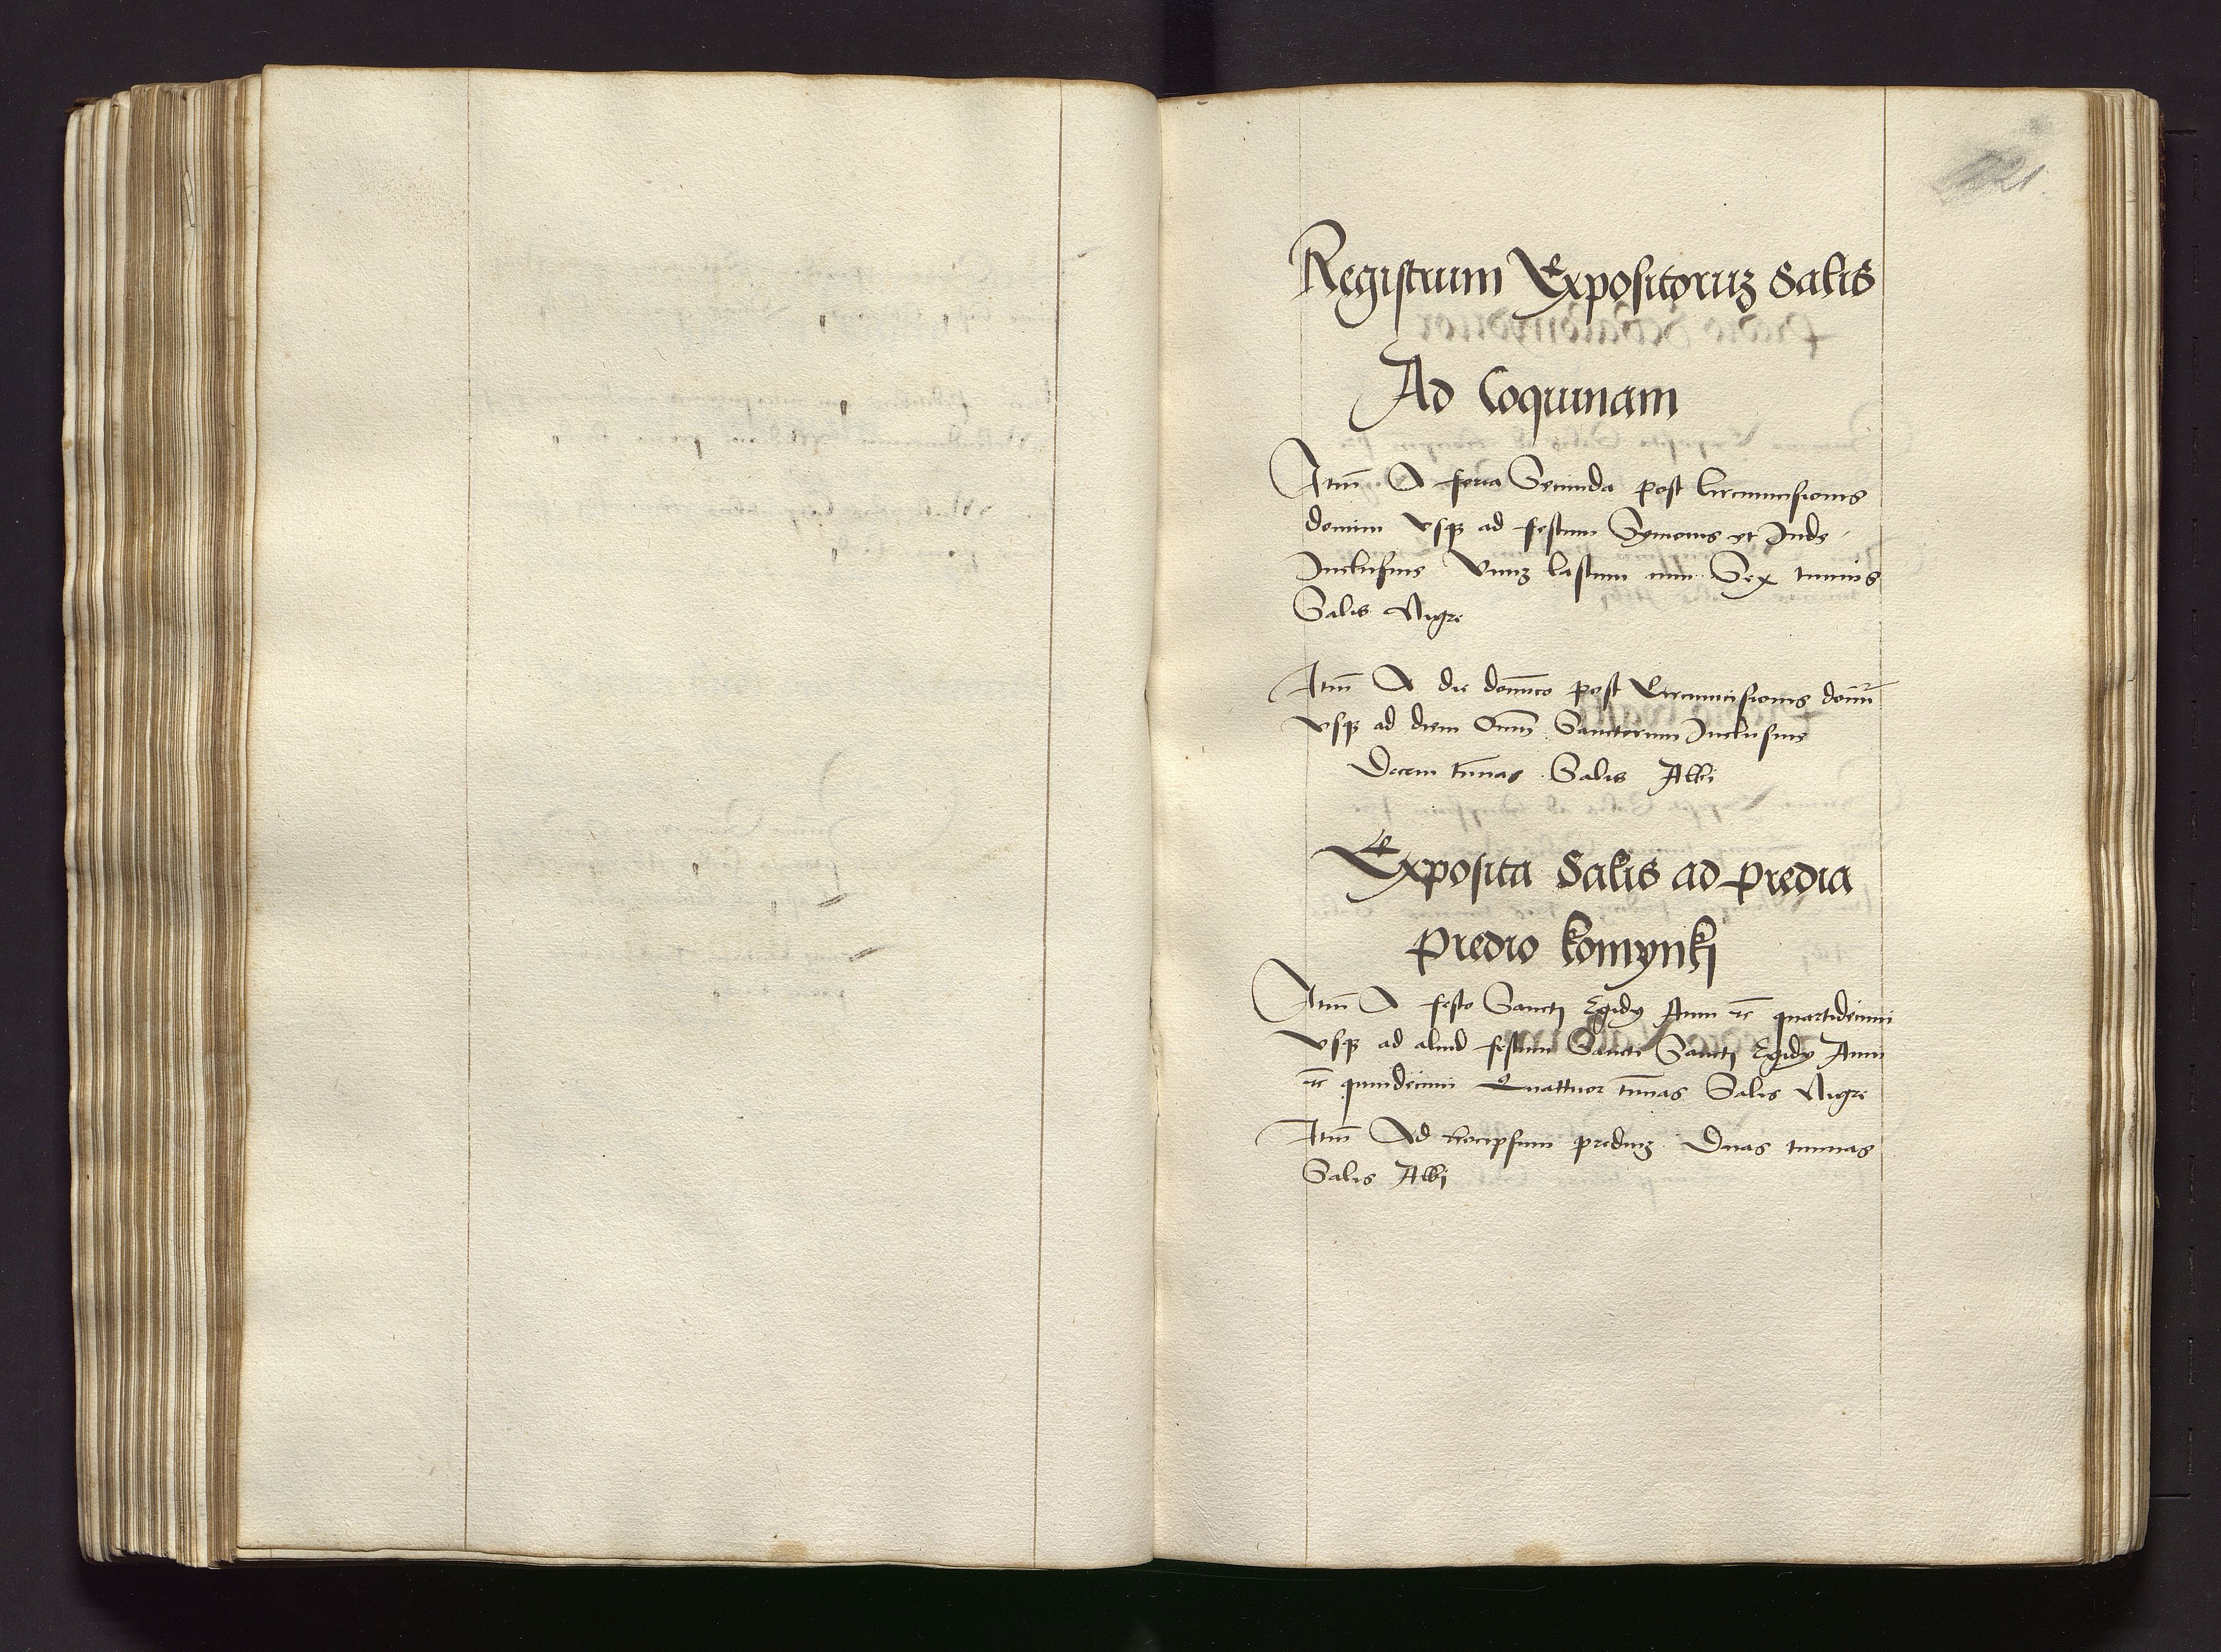 121
Registrum Expositoruz Salis
Ad Coquinam
Itm̄ A feria Secunda post Circumcisionis
domini vsqz ad festum Symonis et Jude
Inclusiue Vnuz lastum cum Sex tunnis
Salis Nigri
Itm̄ A die domīco post Circumcisionis domī
vsqz ad diem Om̄ Sanctorum Inclusiue
Decem tūnas Salis Albi
Exposita Salis ad predia
predio komynkj
Itm̄ A festo Sancti Egidy Anni etc quartidecimi
vsqz ad aliud festum Sancti Sancti Egidy Anni
etc quindecimi Quattuor tūnas Salis Nigri
Itm̄ Ad hocipsum prediuz Duas tunnas
Salis Albj